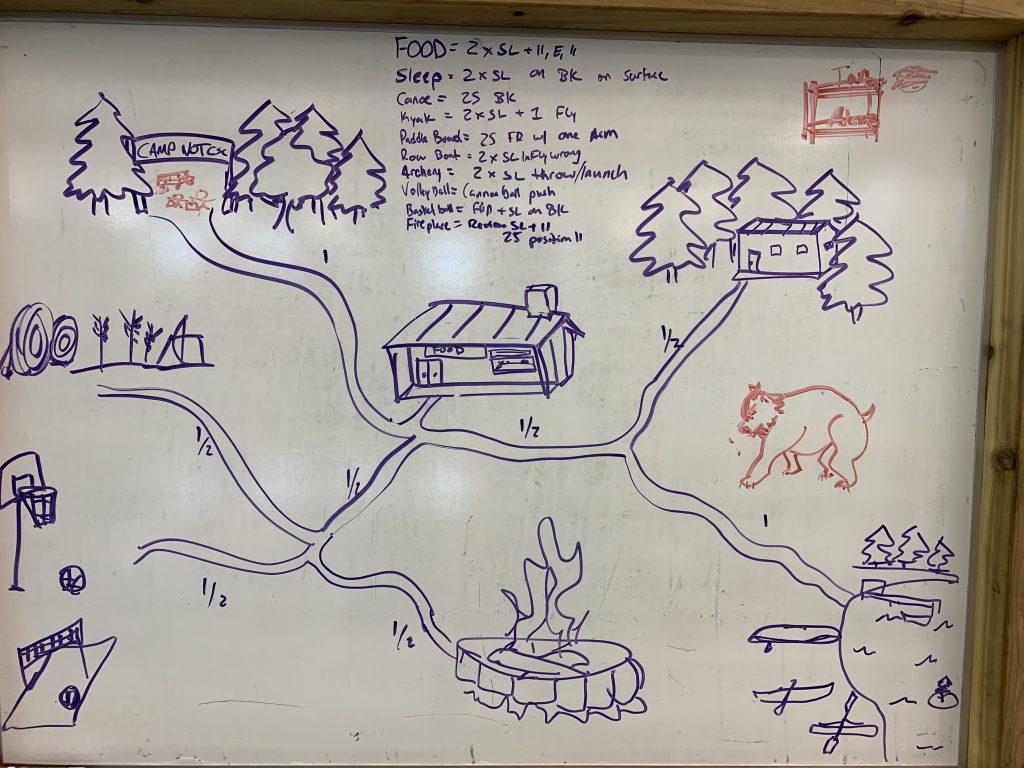 FOOD = 2 x SL + 11, E, 11
Sleep = 2 x SL on BK on surface
Canoe = 25 BK
Kyak = 2 x SL + 1 Fly
Paddle Board = 25 FR w/ one Arm
Row Boat = 2 x SL Fly wrong
Archery = 2 x SL throw/launch
Volley Ball = Cannonball push
Basketball = Flip + SL on BK
Fireplace = SL + 11
25 position 11
CAMP
FOOD
1
1/2
1/2
1/2
1/2
1
1/2
1/2